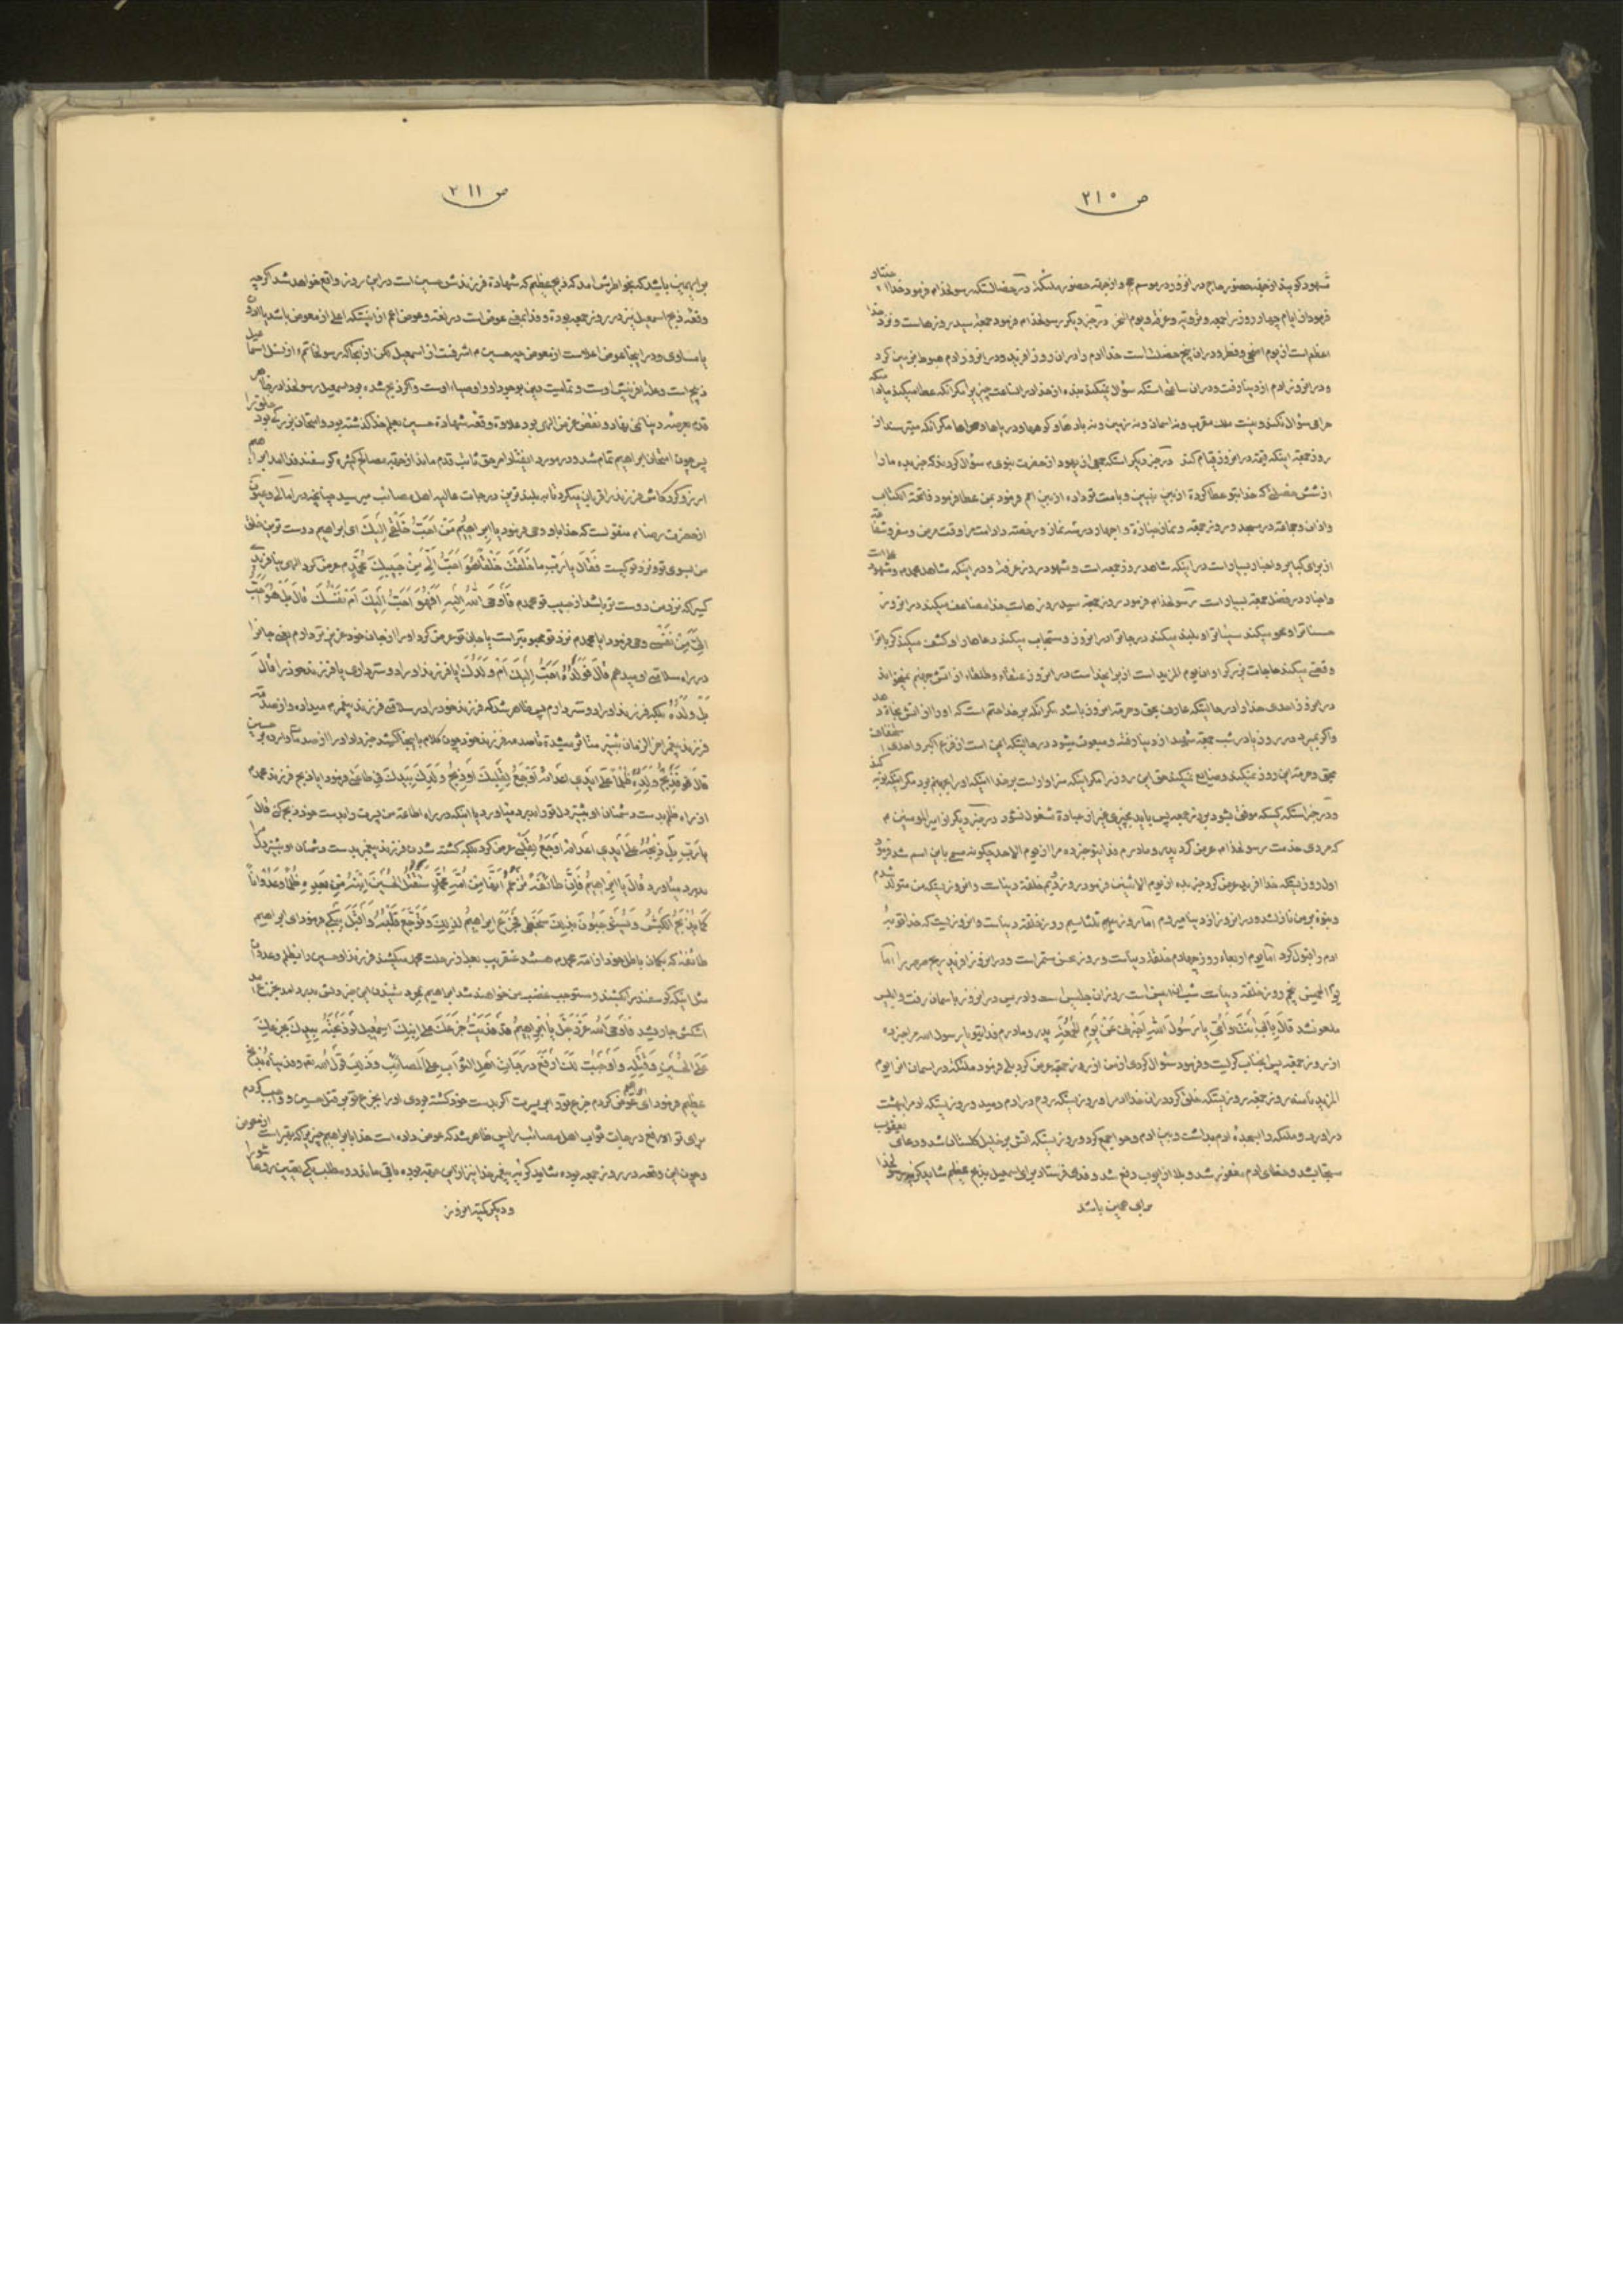 ص ۲۱۰
شهود کویند از جهة حضور حاج در انروز در موسم حج و از جهة حضور ملئکه در رسولخدا م فرمود خدا
فرمود از ایام چهار روز را جمعه و ترویه و عرفه و یوم النحر در خبر دیکر رسولخدا م فرمود جمعه سید روزهاست و نزد خدا
اعظم است از یوم اضحی و فطر و در ان پنج خصلت است خدا ادم را در ان روز افرید و در انروز ادم هبوط بزمین کرد
و در انروز ادم از دنیا رفت و در ان ساعتی است که سؤال نمیکند بنده از خدا در انساعت چیزیرا مکر انکه عطا میکند
حرامی سؤال نکند و نیست ملک مقرب و نه اسمان و نه زمین و نه باد و نه کوهها و دریاها و صحراها مکر انکه میترسند از
روز جمعه اینکه قیمة در انروز قیام کند در خبر دیکر است که جمعی از یهود از حضرت نبوی م سؤال کردند که خبر بده ما را
از شش خصلتی که خدا بتو عطا کرده از بین نبیین و بامت تو داده از بین امم فرمود بمن عطا فرمود فاتحة الکتاب
و اذان و جماعة در مسجد و روز جمعه و نماز جنازه و اجهار در سه نماز و رخصة داد امت مرا وقت مرض و سفر و شفاعة
از برای کبایر و اخبار بسیار است در اینکه شاهد روز جمعه است و مشهود روز عرفه و در اینکه شاهد محمد م و مشهود
و اخبار در فضل جمعه بسیار است رسولخدا م فرمود روز جمعه سید روزهاست خدا مضاعف میکند در انروز
حسنات را و محو میکند سیئات را و بلند میکند درجات را در انروز و مستجاب میکند دعاها را و کشف میکند کربات را
وقضی میکند حاجات بزرک را و ان یوم المزید است از برای خداست در انروز عتقاء و طلقاء از اتش جهنم
در انروز احدی خدا را در حالتیکه عارف بحق و حرمة انروز باشد مکر انکه بر خدا حتم است که او را از اتش نجاة دهد
و اکر بمیرد در روز یا در شب جمعه شهید از دنیا رفته و مبعوث میشود در حالتیکه ایمن است از فزع اکبر و احدی استخفاف
بحق و حرمة این روز نمیکند و ضایع نمیکند حق این روز را مکر اینکه سزاوار است بر خدا اینکه او را بجهنم برد مکر اینکه توبه کند
و در خبر است که کسیکه موفق شود بروز جمعه پس باید بچیزی غیر از عبادة مشغول نشود در خبر دیکر از امیر المومنین م
که مردی خدمت رسولخدا م عرض کرد پدر و مادرم فدای تو خبر ده مرا از یوم الاحد چکونه مسمی باین اسم شد فرمود
اول روزیست که خدا افرید عرض کرد خبر بده از یوم الاثنین فرمود روز دویم خلقة دنیاست و انروزیست که من متولد شدم
و نبوة بر من نازل شد و در انروز از دنیا میروم اما روز سیم ثلثا سیم روز خلقة دنیاست و انروزیست که خدا توبه
ادم را قبول کرد اما یوم اربعاء روز چهارم خلقة دنیاست و روز نحس مستمر است و در انروز افرید ریح صرصر را اما
یوم الخمیس پنجم روز خلقة دنیاست و ادریس در انروز باسمان رفت و ابلیس
ملعون شد قال بابی انت و امی یا رسول الله اخبرنی عن یوم الجمعة پدر و مادرم فدای تو یا رسول الله مرا خبر ده
از روز جمعه پس انجناب کریست و فرمود سئوال کردی از من از روز جمعه عرض کرد بلی فرمود ملئکه در اسمان انرا یوم
المزید نامند روز جمعه روزیست که خلق کرد در ان خدا ادم را و روزیست که روح در ادم دمید و روزیست که ادم را بهشت
در اورد و ملئکه را بسجده ادم بداشت و بین ادم و حوا جمع کرد و روزیست که اتش بر خلیل کلستان شد و دعای یعقوب
مستجاب شد و خطای ادم مغفور شد و بلا از ایوب دفع شد و فدا فرستاد برای اسمعیل بذبح عظیم شاید کریه رسولخدا
برای همین باشد
ص ۲۱۱
برای همین باشد که بخواطرش امد که ذبح عظیم که شهادة فرزندش حسین است در این روز واقع خواهد شد اکرچه
وقعه ذبح اسمعیل نیز در روز جمعه بوده و فدا بمعنی عوض است در لغة و عوض اعم از اینستکه اعلی از معوض باشد یا ادون
یا مساوی و در اینجا عوض اعلاست از معوض چه حسین م اشرفست از اسمعیل لکن از انجا که رسولخاتم م از نسل اسماعیل
ذبیح است و علة افرینش اوست و تمامیت دین بوجود او و اوصیاء اوست و اکر ذبح شده بود اسمعیل رسولخدا در
قدم بعرصه دنیا نمی نهاد و نقض غرض الهی بود علاوه وقعه شهادة حسین بعلم خدا کذشته بود و امتحان بزرکی بود
پس چون امتحان ابراهیم تمام شد و در مورد ابتلا و امر حق ثابت قدم ماند از جهة مصالح کثیره کوسفند فدا امد ابراهیم
ارزو کرد کاش فرزند را قربان میکرد تا به بلندترین درجات عالیه اهل مصائب میرسید چنانچه در امالی و عیون
از حضرت رضا م منقولست که خدا باو وحی فرمود یا ابراهیم من احب خلقی الیک ای ابراهیم دوست ترین خلق
من بسوی تو و نزد تو کیست فقال یا رب ما خلقت خلقا هو احب الی من حبیبک محمد م عرض کرد الهی نیافریدی
کسیرا که نزد من دوست تر باشد از حبیب تو محمد م فاوحی الله الیه افهو احب الیک ام نفسک قال بل هو احب
الی من نفسی وحی فرمود ایا محمد م نزد تو محبوبتر است یا جان تو عرض کرد او را از جان خود عزیزتر دارم یعنی جانرا
در راه سلامتی او میدهم قال فولده احب الیک ام ولدک ایا فرزند او را دوستر داری یا فرزند خود را قال
بل ولده بلکه فرزند او را دوستر دارم پس ظاهر شد که فرزند خود را در سلامتی فرزند پیغمبر م میداده و از صدمه
فرزند پیغمبر اخرالزمان بیشتر متاثر میشده تا صدمه فرزند خود چون کلام باینجا کشید خبر داد او را از صدمات وارده بر حسین
قال فذبح ولده ظلما علی ایدی اعدائه اوجع لقلبک او ذبح ولدک بیدک فی طاعتی فرمود ایا ذبح فرزند محمد م
از راه ظلم بدست دشمنان او بیشتر دل تو را بدرد میاورد یا اینکه در راه اطاعة من پسرت را بدست خود ذبح کنی قال
یا رب بل ذبحه علی ایدی اعدائه اوجع لقلبی عرض کرد بلکه کشته شدن فرزند پیغمبر بدست دشمنان او بیشتر دلم
بدرد میاورد قال یا ابراهیم فان طائفة تزعم انها من امة محمد ستقتل الحسین ابنه من بعده ظلما و عدوانا
کما یذبح الکبش و یستوجبون بذلک سخطی فجزع ابراهیم لذلک و توجع قلبه و اقبل یبکی فرمود ای ابراهیم
طائفه که بکمان باطل خود از امة محمد م هستند عنقریب بعد از رحلت محمد میکشند فرزند او حسین را بظلم و عدوان
مثل اینکه کوسفند را میکشند و مستوجب غضب من خواهند شد ابراهیم بمجرد شنیدن این خبر دلش بدرد امد جزع
اشکش جاری شد فاوحی الله عز و جل یا ابراهیم قد فدیت جزعک علی ابنک اسمعیل لو ذبحته بیدک بجزعک
علی الحسین و قتله و اوجبت لک ارفع درجات اهل الثواب علی المصائب و ذلک قول الله تعه و فدیناه بذبح
عظیم فرمود ای ابراهیم عوض کردم جزع تو را بر پسرت اکر بدست خود کشته بودی او را بجزع تو بر قتل حسین و واجب کردم
برای تو ارفع درجات ثواب اهل مصائب را پس ظاهر شد که عوض داده است خدا بابراهیم چیزیرا که بهتر است از معوض
و چون این وقعه در روز جمعه بوده شاید کریه پیغمبر خدا نیز از این جهة بوده باقی ماند دو مطلب یکی تعیین روز عاشورا
و دیکر کیفیة انروز